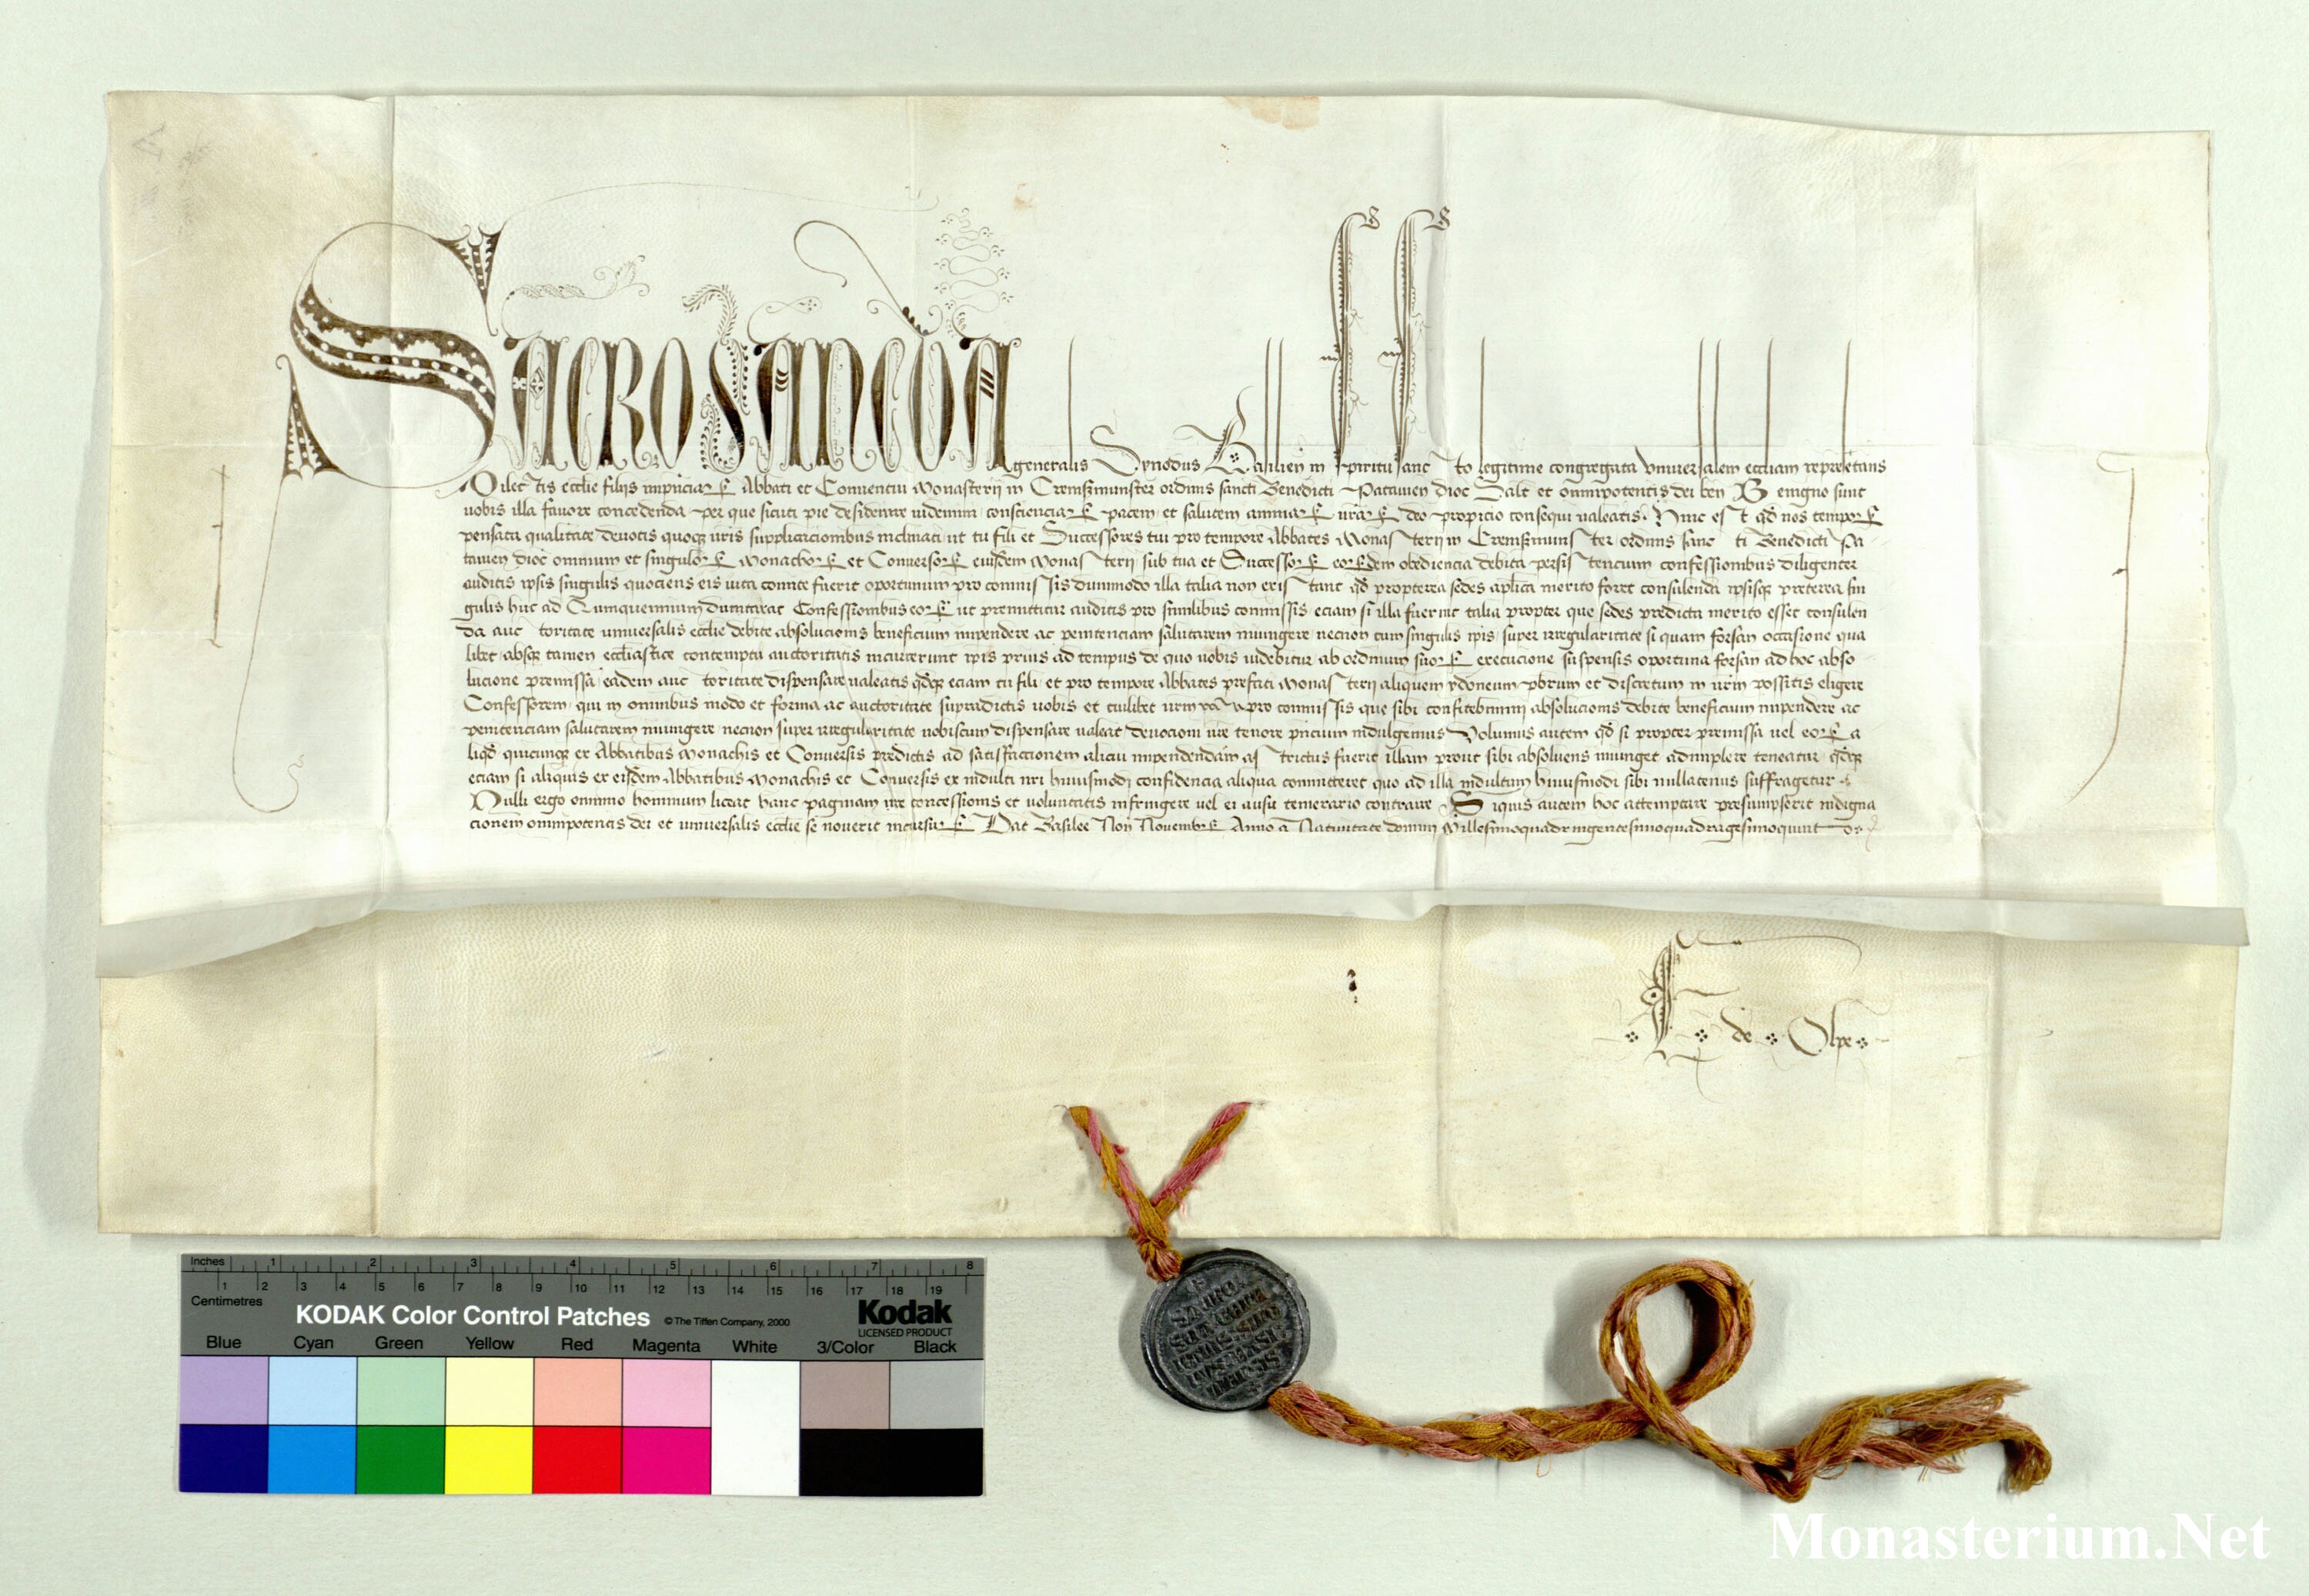 Sacrosancta generalis Synodus Basilien in spiritu sancto legitime congregata universalem eccliam repñtans
Dilectis ecclie filiis Abbati et Conventui Monasterii in Cremsmunster ordinis sancti Benedicti Patavien dioc Salt et omnipotentis dei ben Benigno sunt
vobis illa favore concedenda per que sicuti pie desiderare videmini conscienciarꝝ pacem et salutem animarꝝ vrarꝝ deo propicio consequi valeatis. Hinc est qd nos temporꝝ
pensata qualitate devotis quoqꝫ vris supplicacionibus inclinati ut tu fili et Successores tui pro tempore Abbates Monasterii in Cremsmunster ordinis sancti Benedicti Pa-
tavien dioc omnium et singulorꝝ Monachorꝝ et Conversorꝝ eiusdem Monasterii sub tua et Successorꝝ eorꝝdem obediencia debita persistencium confessionibus diligenter
auditis ipsis singulis quociens eis fuerit oportunum pro commissis dummodo illa talia non existant qd propterea sedes aplica merito foret consulenda ipsisqꝫ preterea sin
gulis hinc ad Quinquennium dumtaxat Confessionibus eorꝝ ut premittitur auditis pro similibus commissis eciam si illa fuerint talia propter que sedes predicta merito esset consulen
da auctoritate universalis ecclie debite absolucionis beneficium impendere ac penitenciam salutarem iniungere necnon cum singulis ipis super irregularitate si quam forsan occasione qua
libet absqꝫ tamen eccliastice contemptu auctoritatis incurrerunt ipis prius ad tempus de quo vobis videbitur ab ordinum suorꝝ execucione suspensis oportuna forsan ad hoc abso
lucione premissa eadem auctoritate dispensare valeatis qdqꝫ eciam tu fili et pro tempore Abbates prefati Monasterii aliquem ydoneum pbrum et discretum in vrm possitis eligere
Confessorem qui in omnibus modo et forma ac auctoritate supradictis vobis et cuilibet vrm pro commissis que sibi confitebimini absolucionis debite beneficium impendere ac
penitenciam salutarem iniungere necnon super irregularitate vobiscum dispensare valeat devocioni vre tenore pncium indulgemus Volumus autem qd si propter premissa vel eorꝝ a
liqd quicunqꝫ ex Abbatibus Monachis et Conversis predictis ad satisfaccionem alicui impendendam astrictus fuerit illam prout sibi absolvens iniunget adimplere teneatur qdqꝫ
eciam si aliquis ex eisdem Abbatibus Monachis et Conversis ex indulti nri huiusmodi confidencia aliqua committeret quo ad illa indultum huiusmodi sibi nullatenus suffragetur
Nulli ergo omnino hominum liceat hanc paginam nre concessionis et voluntatis infringere vel ei ausu temerario contraire Siquis autem hoc attemptare presumpserit indigna
cionem omnipotentis dei et universalis ecclie se noverit incursurꝝ Dat Basilee Non Novembrꝝ Anno a Nativitate domini Millesimoquadringentesimoquadragesimoquinto
de Olpe
Inches 1 2 3 4 5 6 7 8
1 2 3 4 5 6 7 8 9 10 11 12 13 14 15 16 17 18 19
Centimetres
KODAK Color Control Patches © The Tiffen Company, 2000 Kodak
LICENSED PRODUCT
Blue Cyan Green Yellow Red Magenta White 3/Color Black
Monasterium.Net